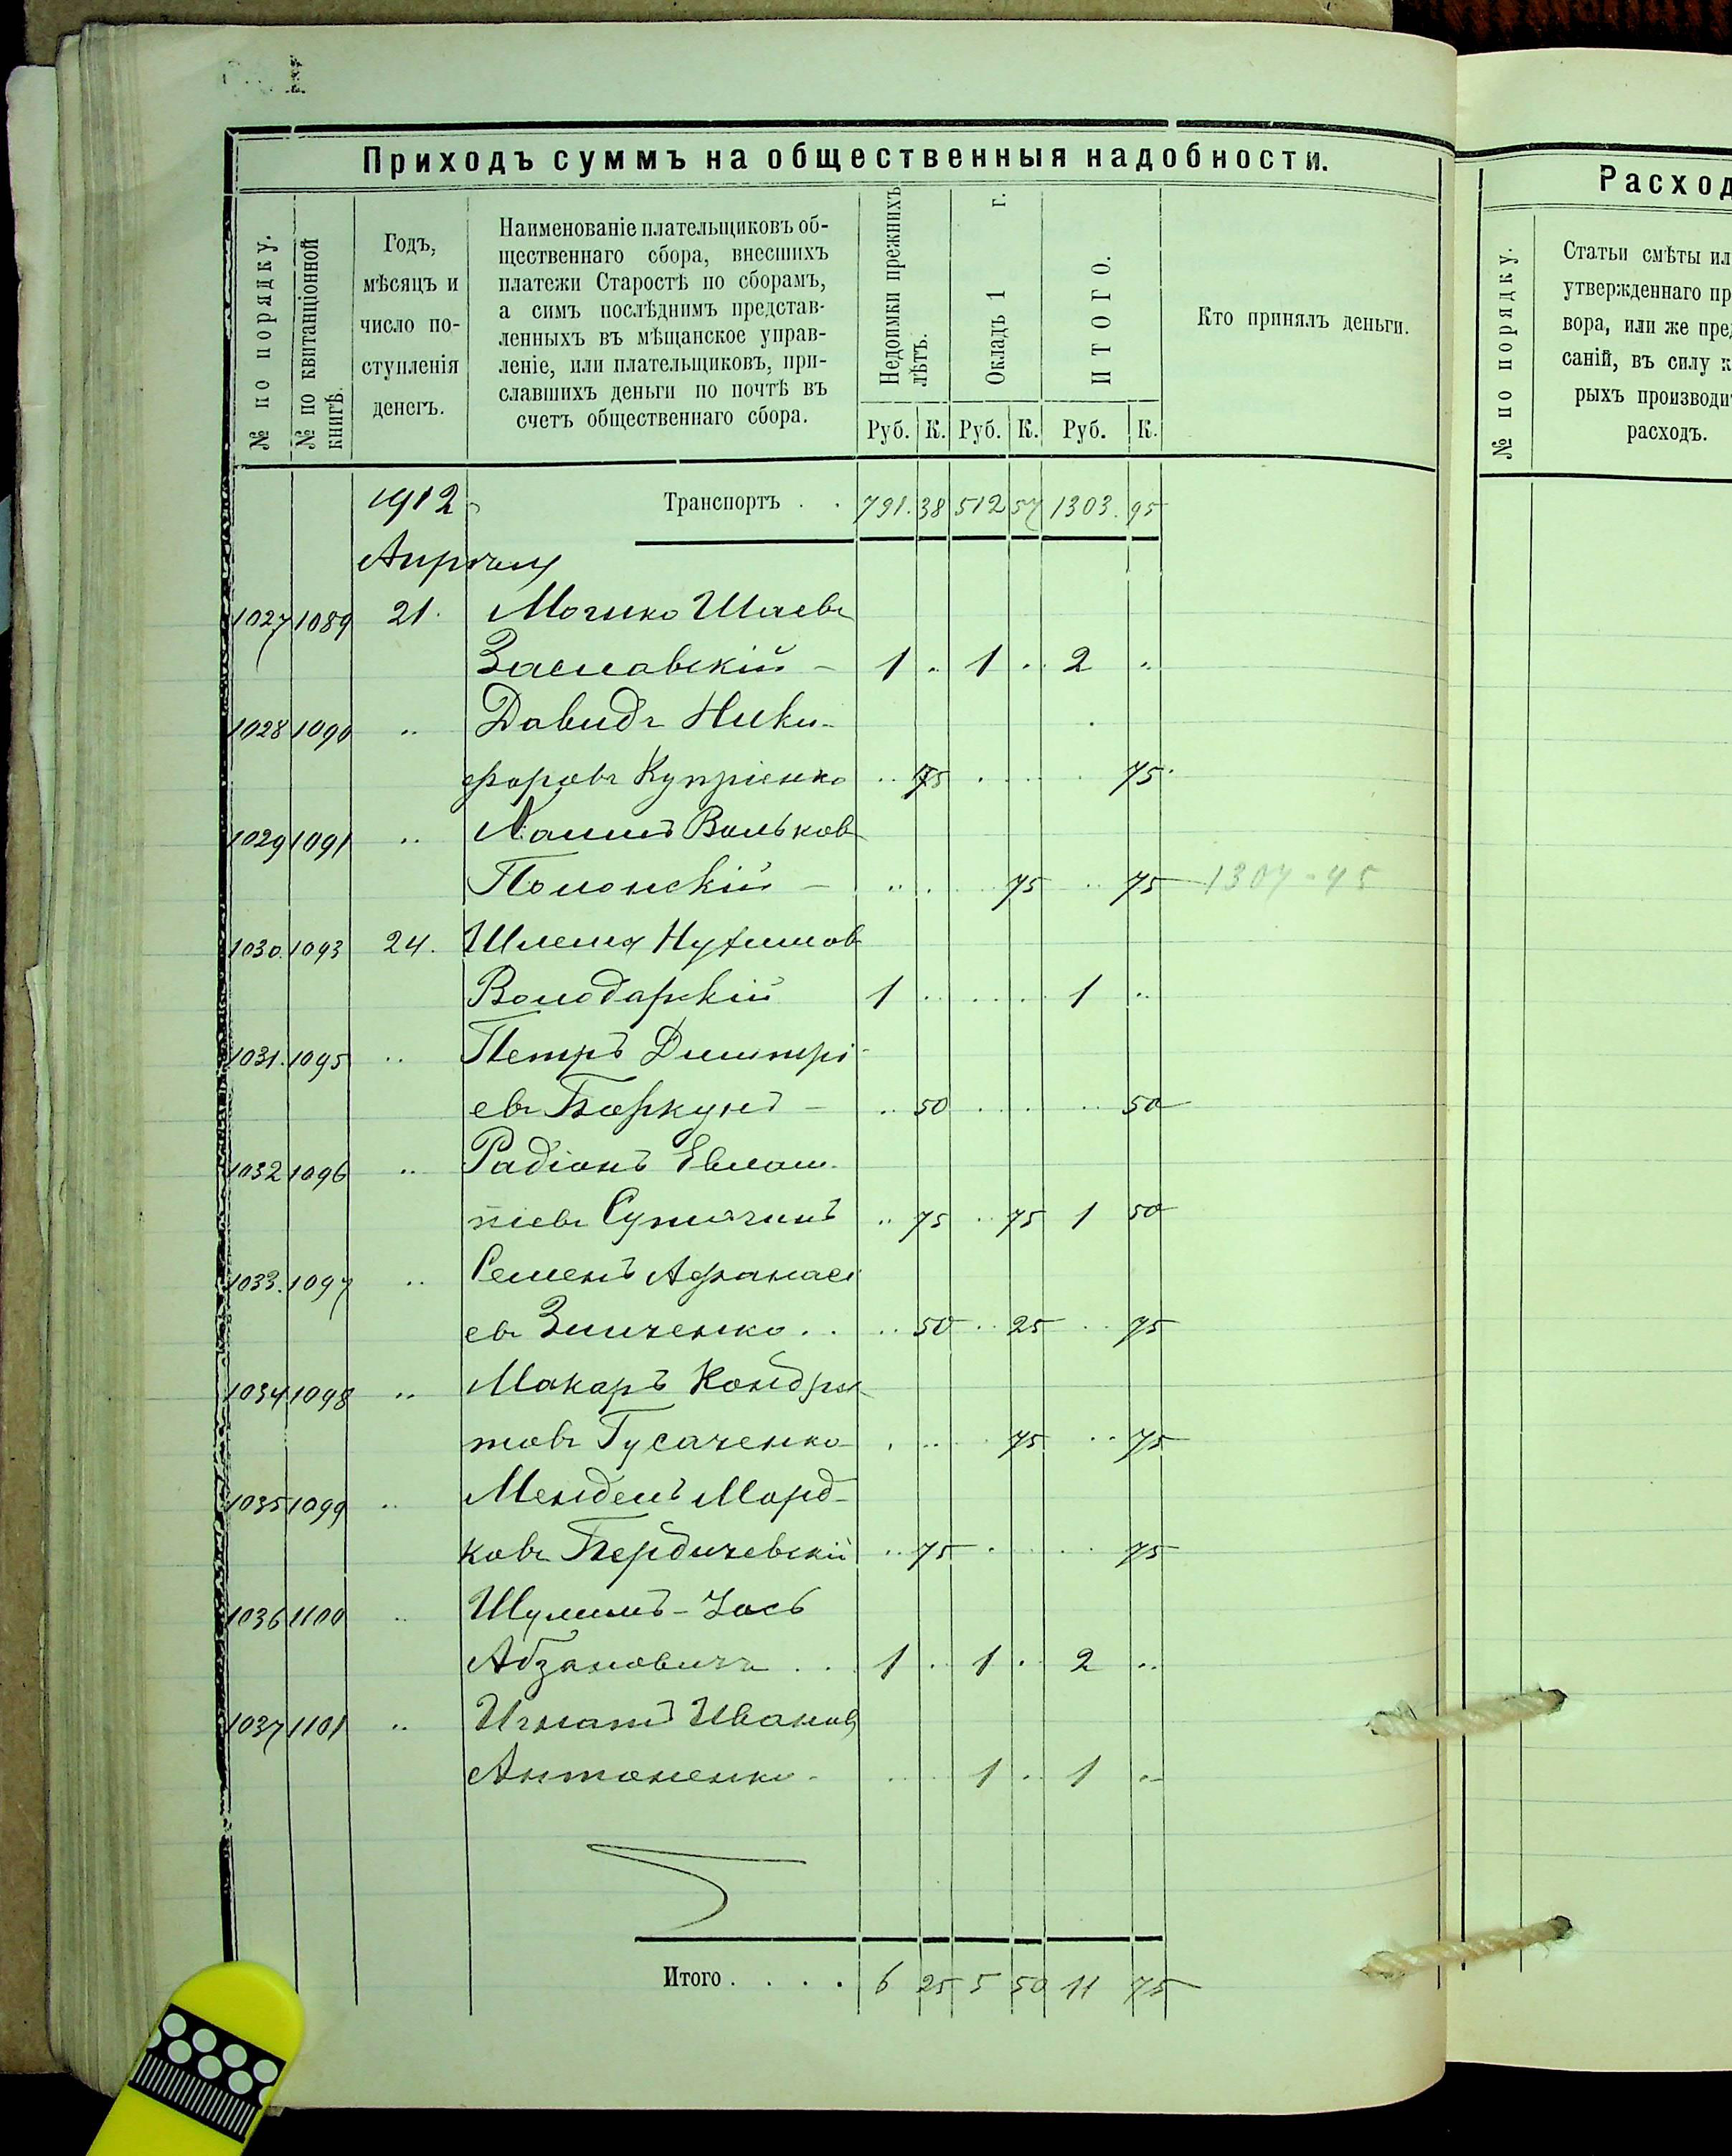 Приходъ суммъ на общественныя надобности.
№ по порядку.
№ по квитанціонной
книгѣ.
Годъ,
мѣсяцъ и
число по-
ступленія
денегъ.
Наименованіе плательщиковъ об-
щественнаго сбора, внесшихъ
платежи Старостѣ по сборамъ,
а симъ послѣднимъ представ-
ленныхъ въ мѣщанское управ-
леніе, или плательщиковъ, при-
славшихъ деньги по почтѣ въ
счетъ общественнаго сбора.
Недоимки прежнихъ
лѣтъ.
Окладъ 1 г.
ИТОГО.
Руб. К. Руб. К. Руб. К.
Кто принялъ деньги.
1912 Транспортъ . . 791. 38 512 57 1303. 95
Апрѣля
1027 1089 21. Мошко Шаевъ
Заславскій - 1 .. 1 .. 2 ..
1028 1090 .. Давидъ Ники-
форовъ Купріенко .. 75 . . . 75.
1029 1091 .. Хаимъ Вольковъ
Полонскій - .. . . 75 .. 75 1307-45
1030. 1093 24. Шлема Нухимовъ
Володарскій 1 .. . .. 1 ..
1031. 1095 .. Петръ Димитрі-
евъ Боркунъ - .. 50 . . .. 50
1032 1096 .. Радіонъ Евлам-
піевъ Супичинъ .. 75 .. 75 1 50
1033. 1097 .. Семенъ Афанасі
евъ Зинченко . . .. 50 .. 25 .. 75
1034 1098 .. Макаръ Кондра-
товъ Гусаченко . .. . 75 .. 75
1035 1099 .. Мендель Морд-
ковъ Бердичевскій .. 75 . . . 75
1036 1100 .. Шулимъ-Іось
Абзановичъ . . 1 . 1 . 2 ..
1037 1101 .. Игнатъ Ивановъ
Антоненко - . . 1 .. 1 ..
Итого . . . . 6 25 5 50 11 75
Расход
№ по порядку.
Статьи смѣты ил
утвержденнаго пр
вора, или же пред
саній, въ силу к
рыхъ производи
расходъ.